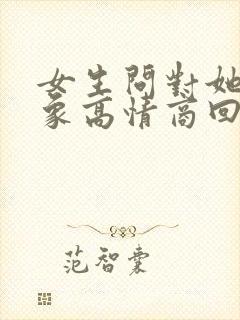 女生問對她
象高情商回
范智囊